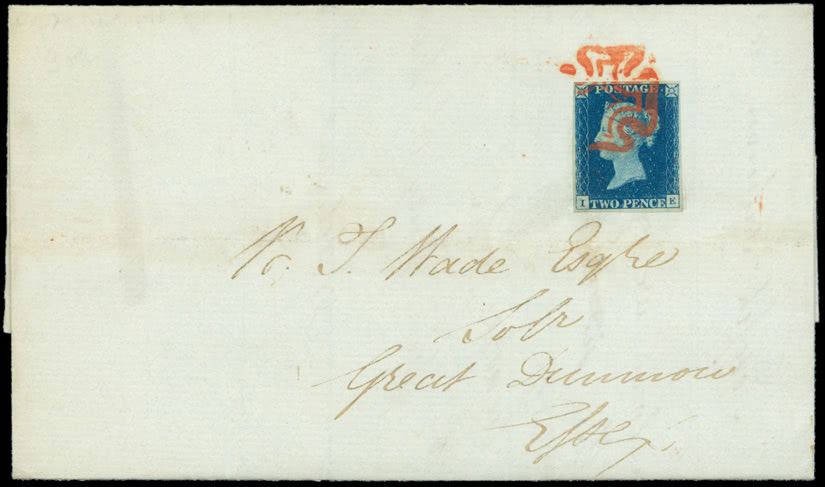 POSTAGE
I TWO PENCE E
T. Wade Esqre
Solr
Great Dunmow
Essex